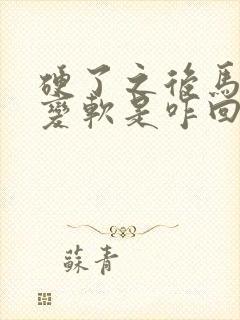 硬了之後馬
變軟是咋回
蘇青